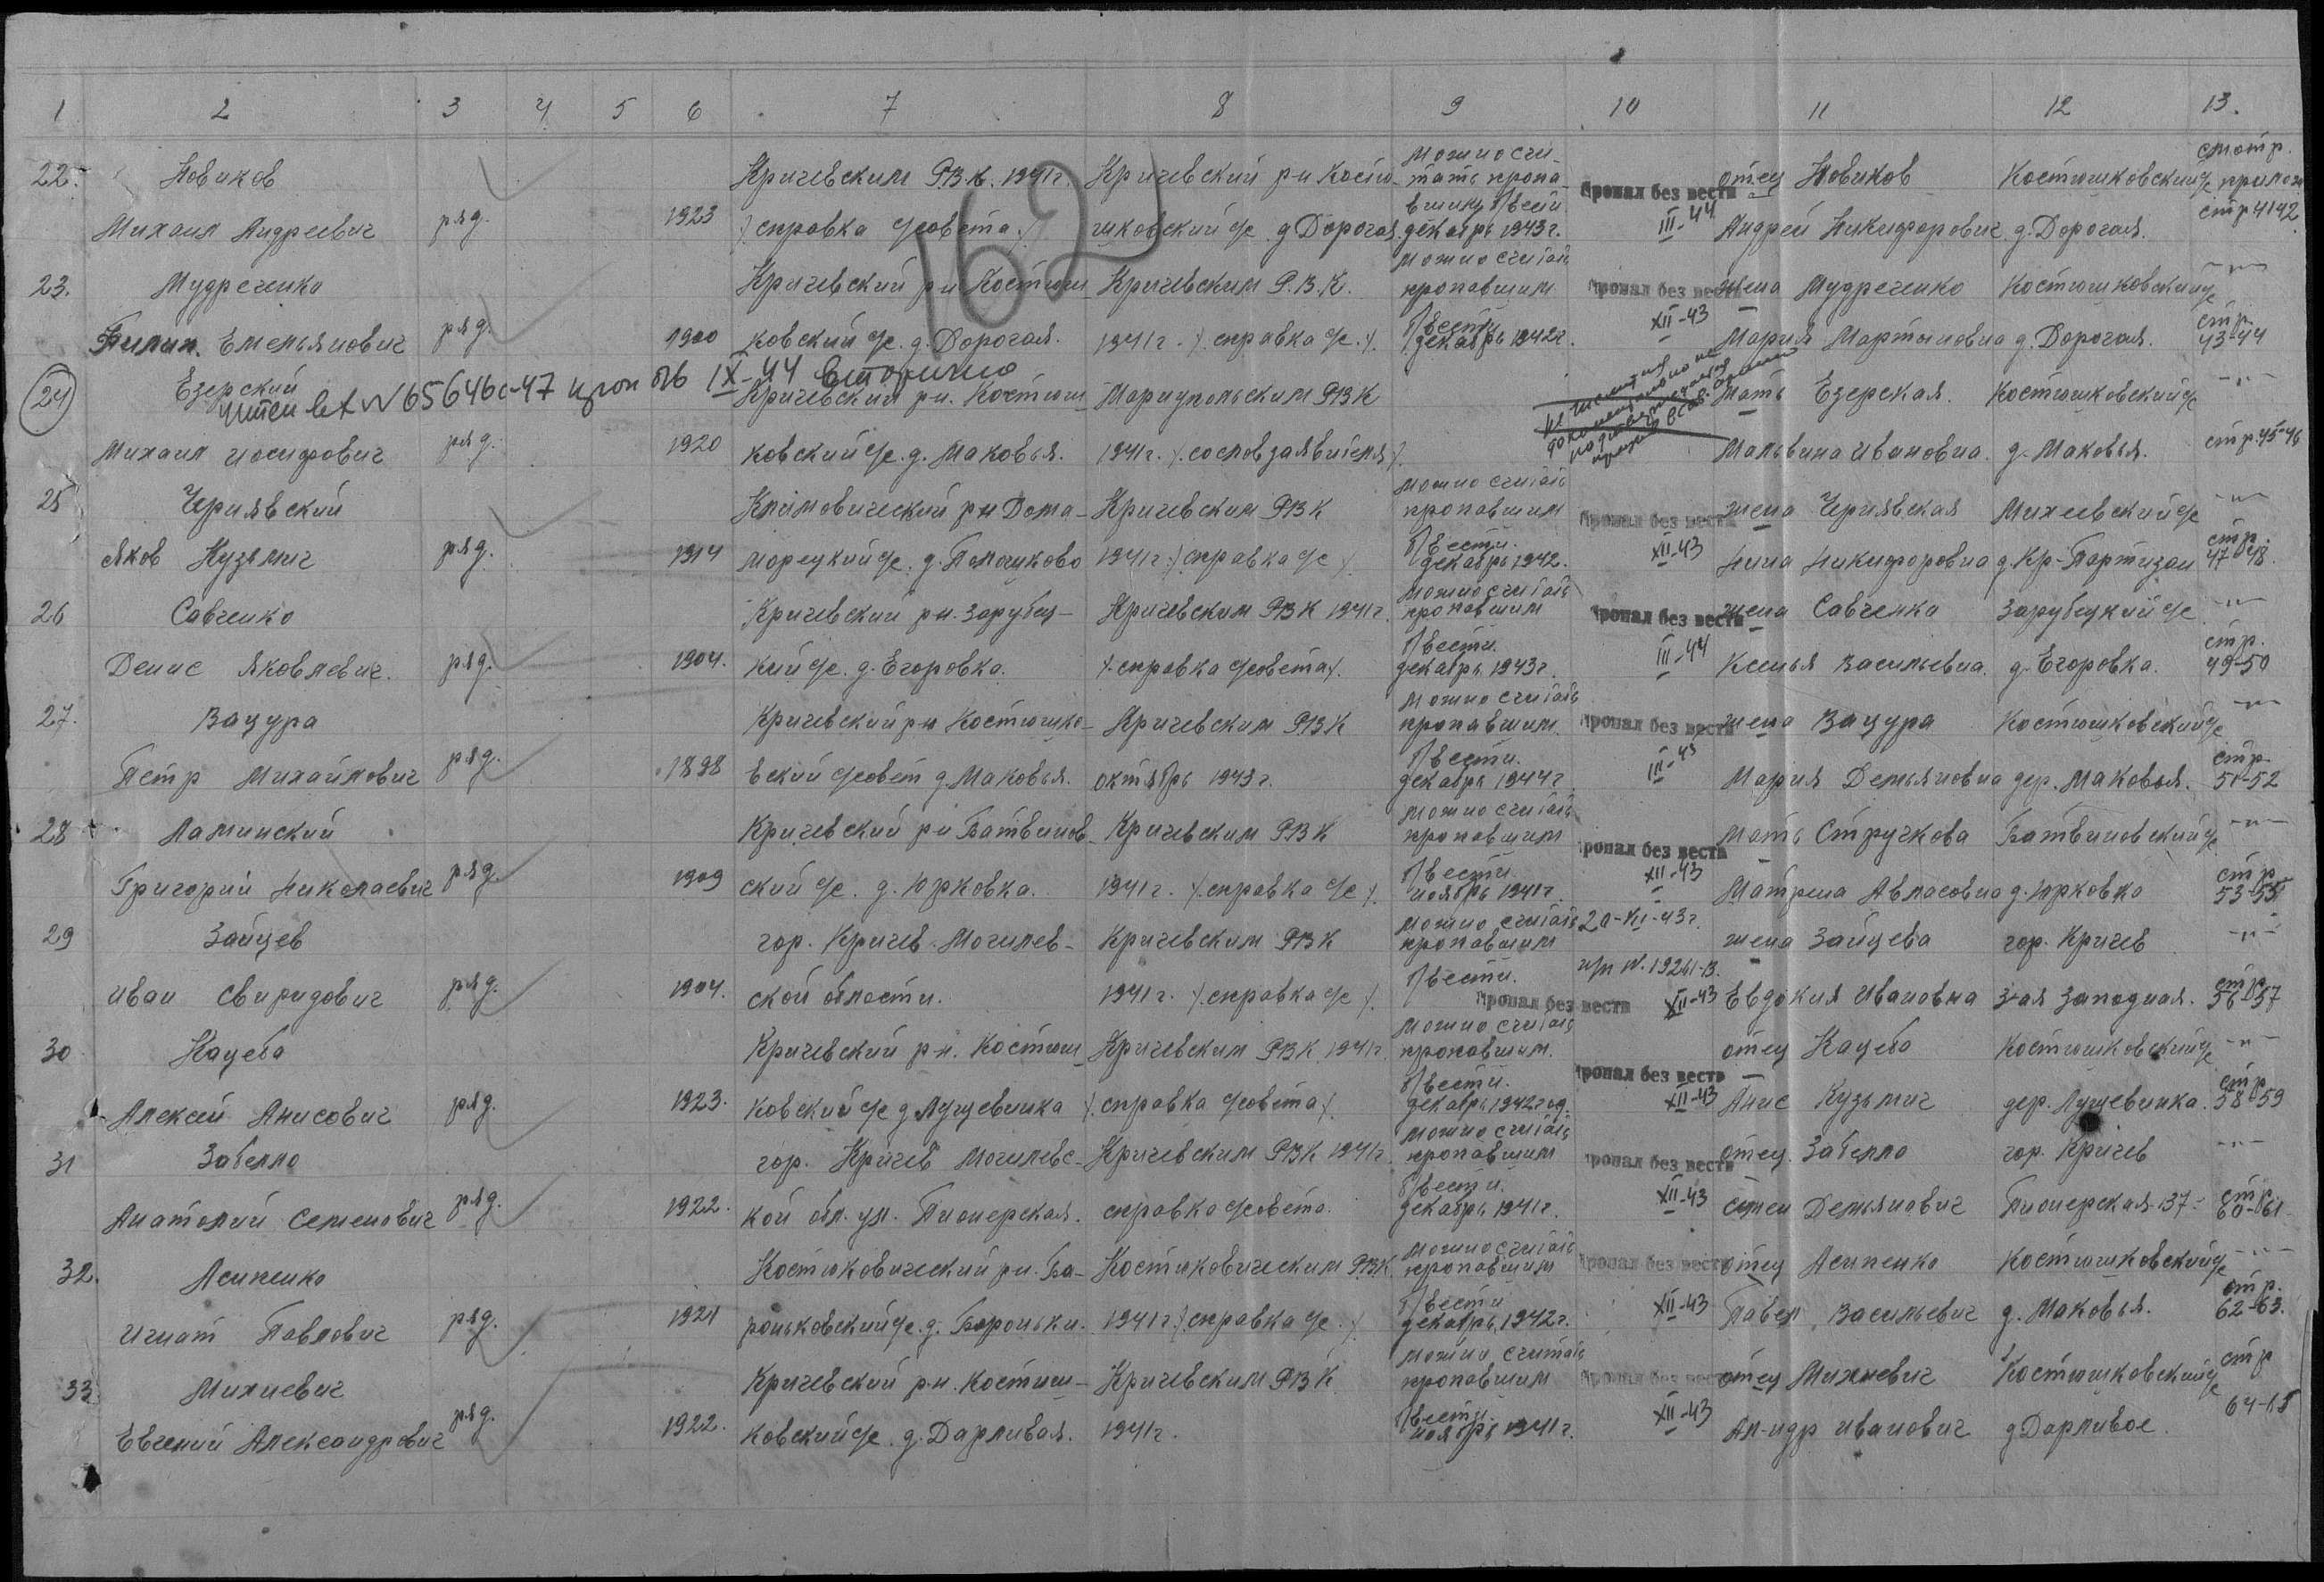 1 2 3 4 5 6 7 8 9 10 11 12 13.
162
22. Новиков Кричевским РВК. 1941г. Кричевский р-н Костю- можно счи- отец Новиков Костюшковский с/с смотр.
тать пропа- Пропал без вести прилож
Михаил Андреевич ряд. 1923 /справка с/совета/ шковский с/с д Дорогая. вшим б/вести III-44 Андрей Никифорович д. Дорогая. стр 41 42
декабрь 1943г.
23. Мудреченко Кричевский р-н Костюш- Кричевским Р.В.К. можно считать пропавшим Пропал без вести жена Мудреченко Костюшковский с/с -"-
Филип. Емельянович ряд. 1900 ковский с/с. д. Дорогая. 1941г. /справка с/с./ б/вести декабрь 1942г. XII-43 Мария Мартыновна д. Дорогая. стр. 43-44
24 Езерский Кричевский р-н. Костюш- Мариупольским РВК мать Езерская. Костюшковский с/с -"-
IX-44 вторично
Михаил Иосифович ряд. 1920 ковский с/с. д. Маковья. 1941г. /со слов заявителя/. Мальвина Ивановна. д. Маковья. стр. 45-46
25 Чернявский Климовический р-н Дома- Кричевским РВК можно считать пропавшим Пропал без вести жена Чернявская Михеевский с/с -"-
Яков Кузьмич ряд. 1914 морецкий с/с. д. 1941г. /справка с/с/ б/вести. декабрь 1942. XII-43 Нина Никифоровна д. Кр-Партизан стр. 47 48.
26 Савченко Кричевский р-н. Зарубец- Кричевским РВК 1941г. можно считать пропавшим Пропал без вести жена Савченко Зарубецкий с/с -"-
Денис Яковлевич. ряд. 1904. кий с/с. д. Егоровка. /справка с/совета/. б/вести. декабрь 1943г. III-44 Ксенья Васильевна. д. Егоровка. стр. 49-50
27. Вацура Кричевский р-н Костюшко- Кричевским РВК можно считать пропавшим Пропал без вести жена Вацура Костюшковский с/с -"-
Петр Михайлович ряд. 1898 вский с/совет д. Маковья. октябрь 1943г. б/вести. декабрь 1944г. III-45 Мария Демьяновна дер. Маковья. стр. 51-52
28 Ламинский Кричевский р-н Батвинов- Кричевским РВК можно считать пропавшим Пропал без вести мать Стручкова Батвиновский с/с -"-
Григорий Николаевич ряд. 1909 ский с/с. д. Юрковка. 1941г. /справка с/с/. б/вести. ноябрь 1941г. XII-43 Матрена Авласовна д. Юрковка стр. 53-55
29 Зайцев гор. Кричев. Могилев- Кричевским РВК можно считать пропавшим 20-VII-43г. жена Зайцева гор. Кричев -"-
и/п №. 19261-В.
Иван Свиридович ряд. 1904. ской области. 1941г. /справка с/с/. б/вести. Пропал без вести XII-43 Евдокия Ивановна 3-ая Западная. стр 56-57
30 Кацебо Кричевский р-н. Костюш- Кричевским РВК 1941г. можно считать пропавшим. Пропал без вести отец Кацебо Костюшковский с/с -"-
Алексей Анисович ряд. 1923. ковский с/с д Лущевинка /справка с/совета/. б/вести. декабрь 1942 год. XII-43 Анис Кузьмич дер. Лущевинка. стр. 58-59
31 Забелло гор. Кричев Могилевс- Кричевским РВК 1941г. можно считать пропавшим Пропал без вести отец. Забелло гор. Кричев -"-
Анатолий Семенович ряд. 1922. кой обл. ул. Пионерская. справка с/совета. б/вести. декабрь 1941г. XII-43 Семен Демьянович Пионерская-37- стр. 60-61
32. Асипенко Костюковический р-н. Ба- Костюковическим РВК можно считать пропавшим Пропал без вести отец Асипенко Костюшковский с/с -"-
Игнат Павлович ряд. 1921 роньковский с/с. д. Бороньки. 1941г. /справка с/с./ б/вести декабрь 1942г. XII-43 Павел Васильевич д. Маковья. стр. 62-63.
33. Михневич Кричевский р-н. Костюш- Кричевским РВК можно считать пропавшим Пропал без вести отец Михневич Костюшковский с/с стр
Евгений Александрович ряд. 1922. ковский с/с. д. Дарливая. 1941г. б/вести. ноябрь 1941г. XII-43 Ал-ндр Иванович д Дарливое. 64-65